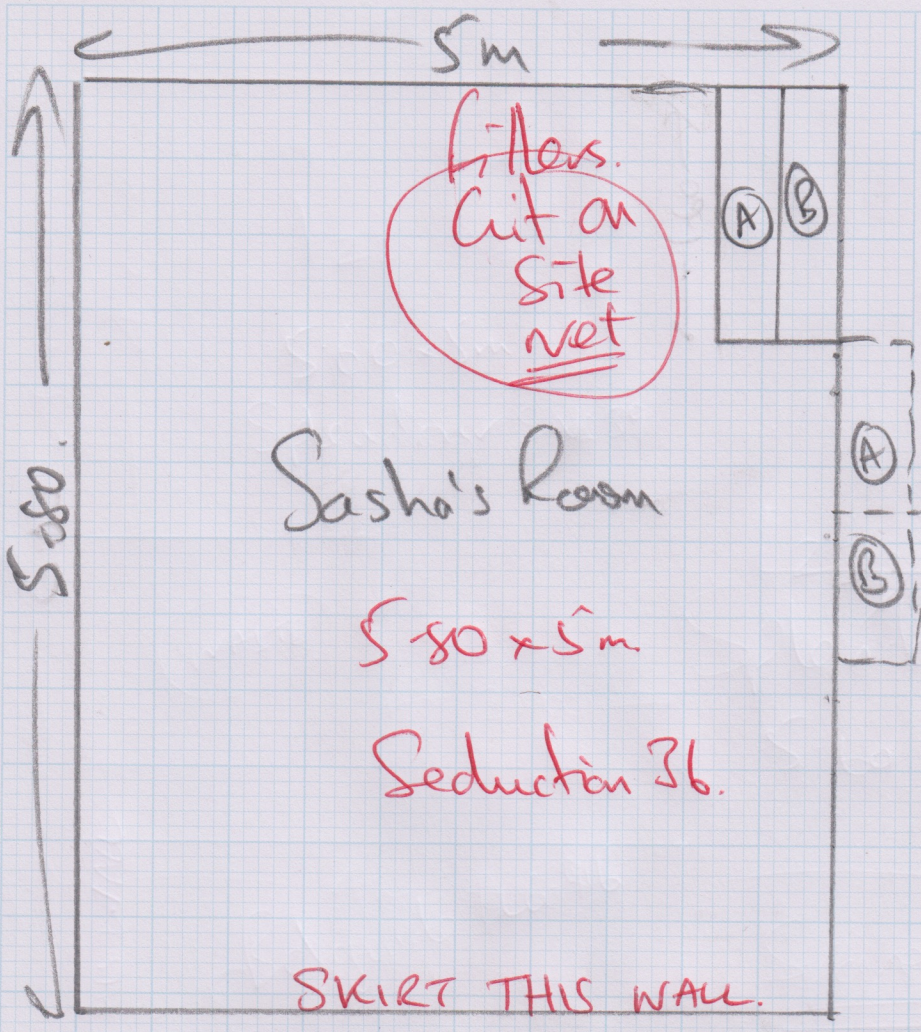 5m
Fitters.
Cut on
Site
net
A
B
5.80.
Sasha's Room
A
B
5.80 x 5m
Seduction 36.
SKIRT THIS WALL.